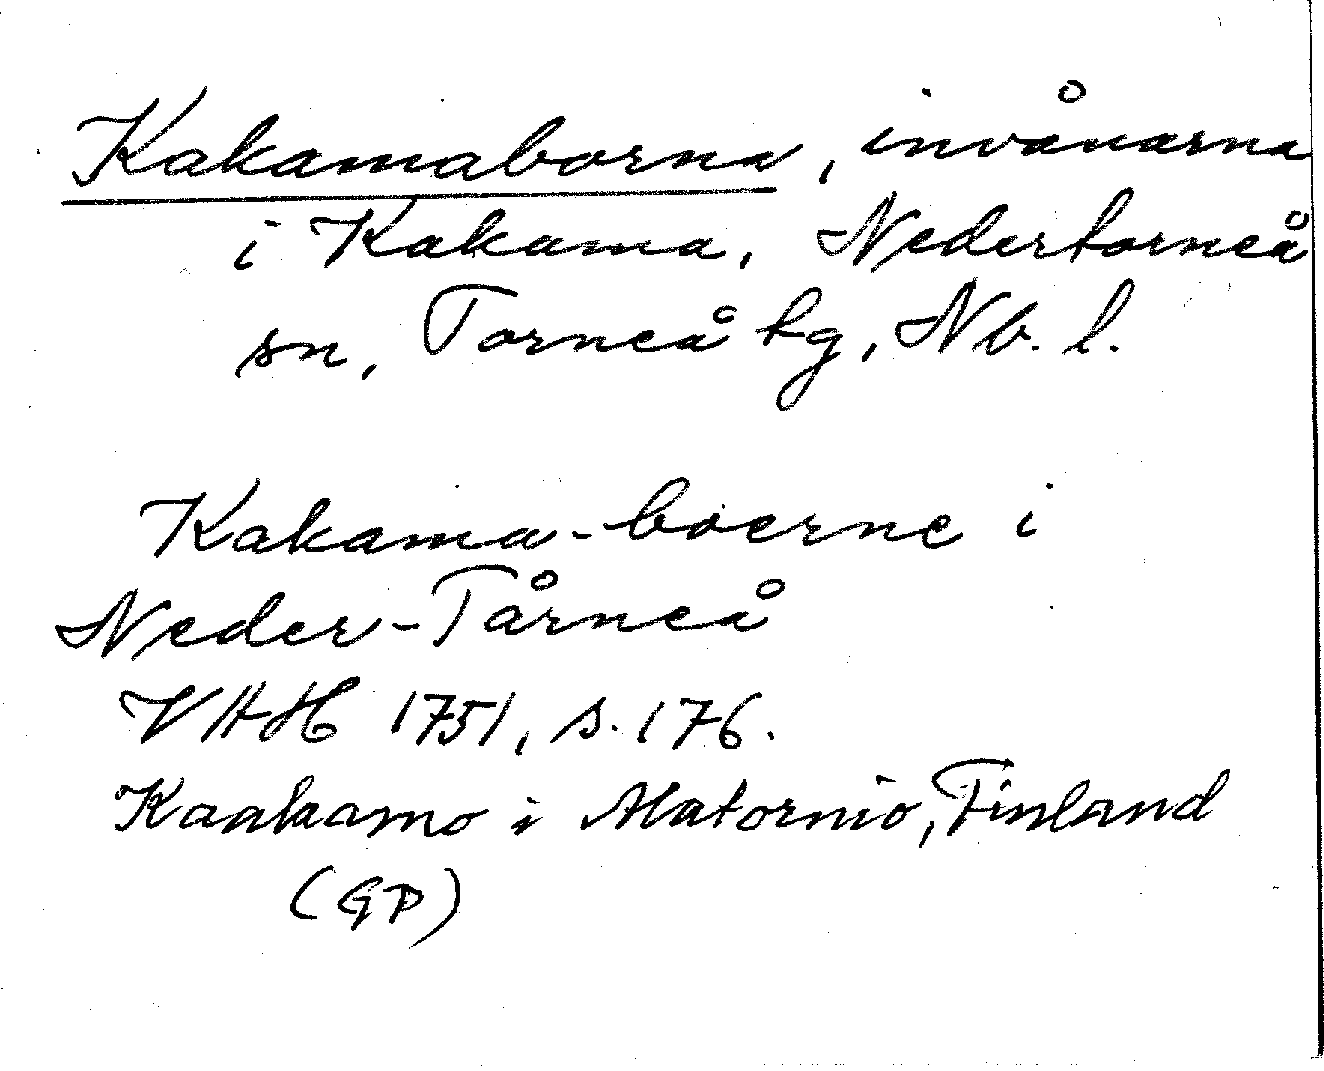 Kakamaborna, invånarna
i Kakama, Nedertorneå
sn, Torneå tg, Nb. l.
Kakama-boerne i
Neder-Tårneå
VHAH 1751, s. 176.
Kaakamo i Alatornio, Finland
(GP)